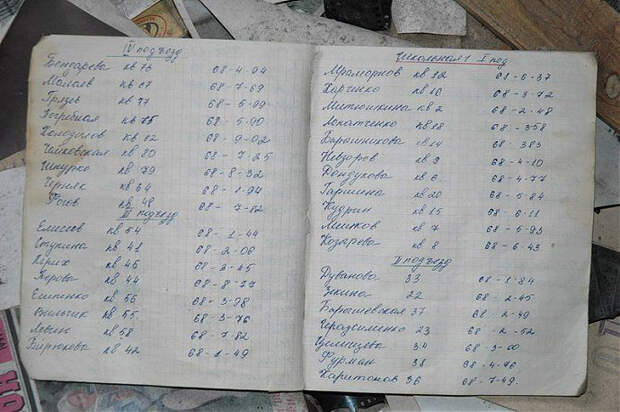 IV подъезд
Бочкарева кв 76 68-4-94
Малаев кв 67 68-7-69
Грязев кв 77 68-5-99
Погребная кв 75 68-5-90
Холодилов кв 62 68-9-02
Чайковская кв 80 68-7-25
Шкурко кв 79 68-8-32
Черняк кв 64 68-1-94
Рогов кв 48 68-7-82
III подъезд
Елисеев кв 54 68-1-44
Ступина кв 41 68-2-06
Кирих кв 46 68-3-45
Серова кв 44 68-8-77
Есипенко кв 56 68-3-98
Вильчик кв 55 68-3-76
Львин кв 58 68-7-82
Бирюкова кв 42 68-1-49
Школьная 1 I под
Мраморнов кв 12 61-6-37
Харченко кв 10 68-3-72
Митюшкина кв 2 68-2-48
Лопатченко кв 18 68-358
Барашникова кв 14 68-383
Невзоров кв 9 68-4-10
Дондукова кв 6 68-4-77
Гаршина кв 20 68-5-84
Кудрин кв 15 68-6-11
Мешков кв 7 68-5-93
Козарева кв 8 68-6-43
II подъезд
Дуванова 33 68-1-84
Зыкина 22 68-2-45
Барашевская 37 68-2-49
Герасименко 23 68-2-52
34 68-3-00
Фурман 38 68-4-76
Харитонов 36 68-7-49